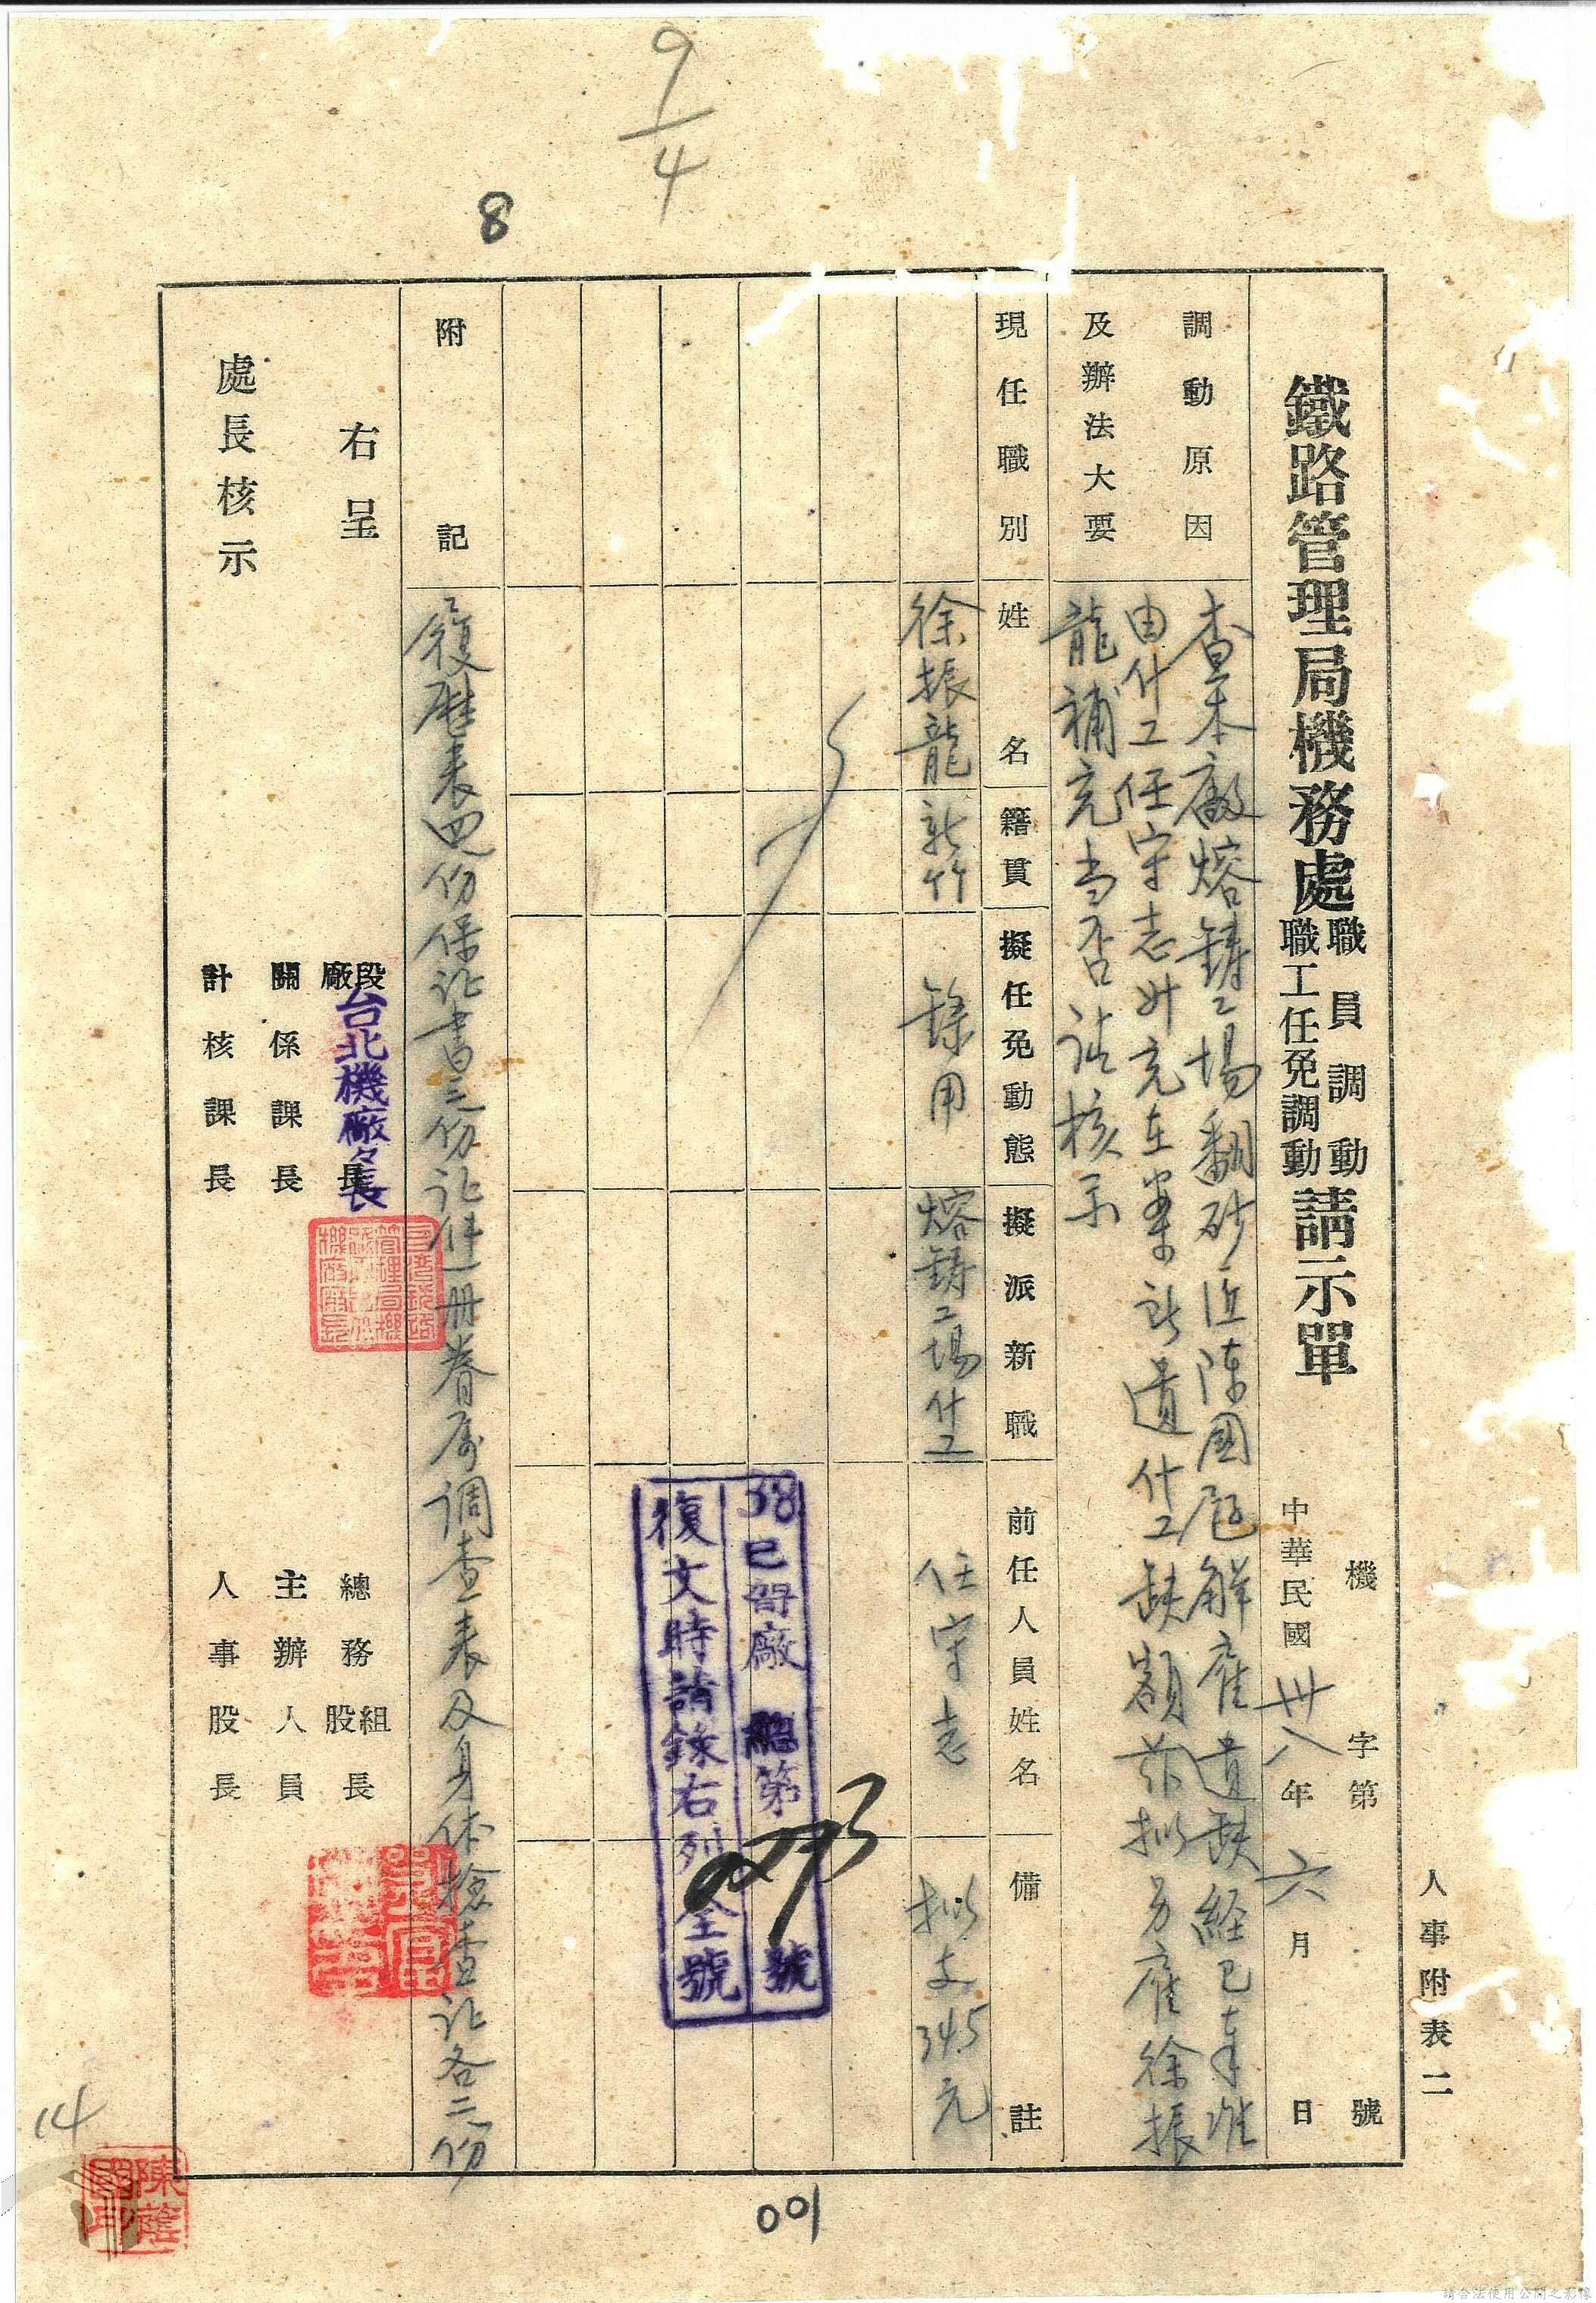 9/4
8
人事附表二
機 字第 號
鐵路管理局機務處職員調動職工任免調動請示單
中華民國卅八年六月 日
調動原因
及辦法大要
查本廠熔鑄工場翻砂匠陳國 解雇遺缺經已奉准
由什工任守志升充在案 遺什工缺額茲擬另雇徐振
龍補充当否請核示
現任職別
姓名
籍貫
擬任免動態
擬派新職
前任人員姓名
備註
徐振龍
新竹
錄用
熔鑄工場什工
任守志
擬支345元
38已 廠 第 號
復文時請錄右列全號
附記
履歷表四份保証書三份証件一冊眷屬調查表及身体檢查証各二份
右呈
處長核示
段廠長
台北機廠々長
關係課長
計核課長
總務組股長
主辦人員
人事股長
14
001
請合法使用公開之影像